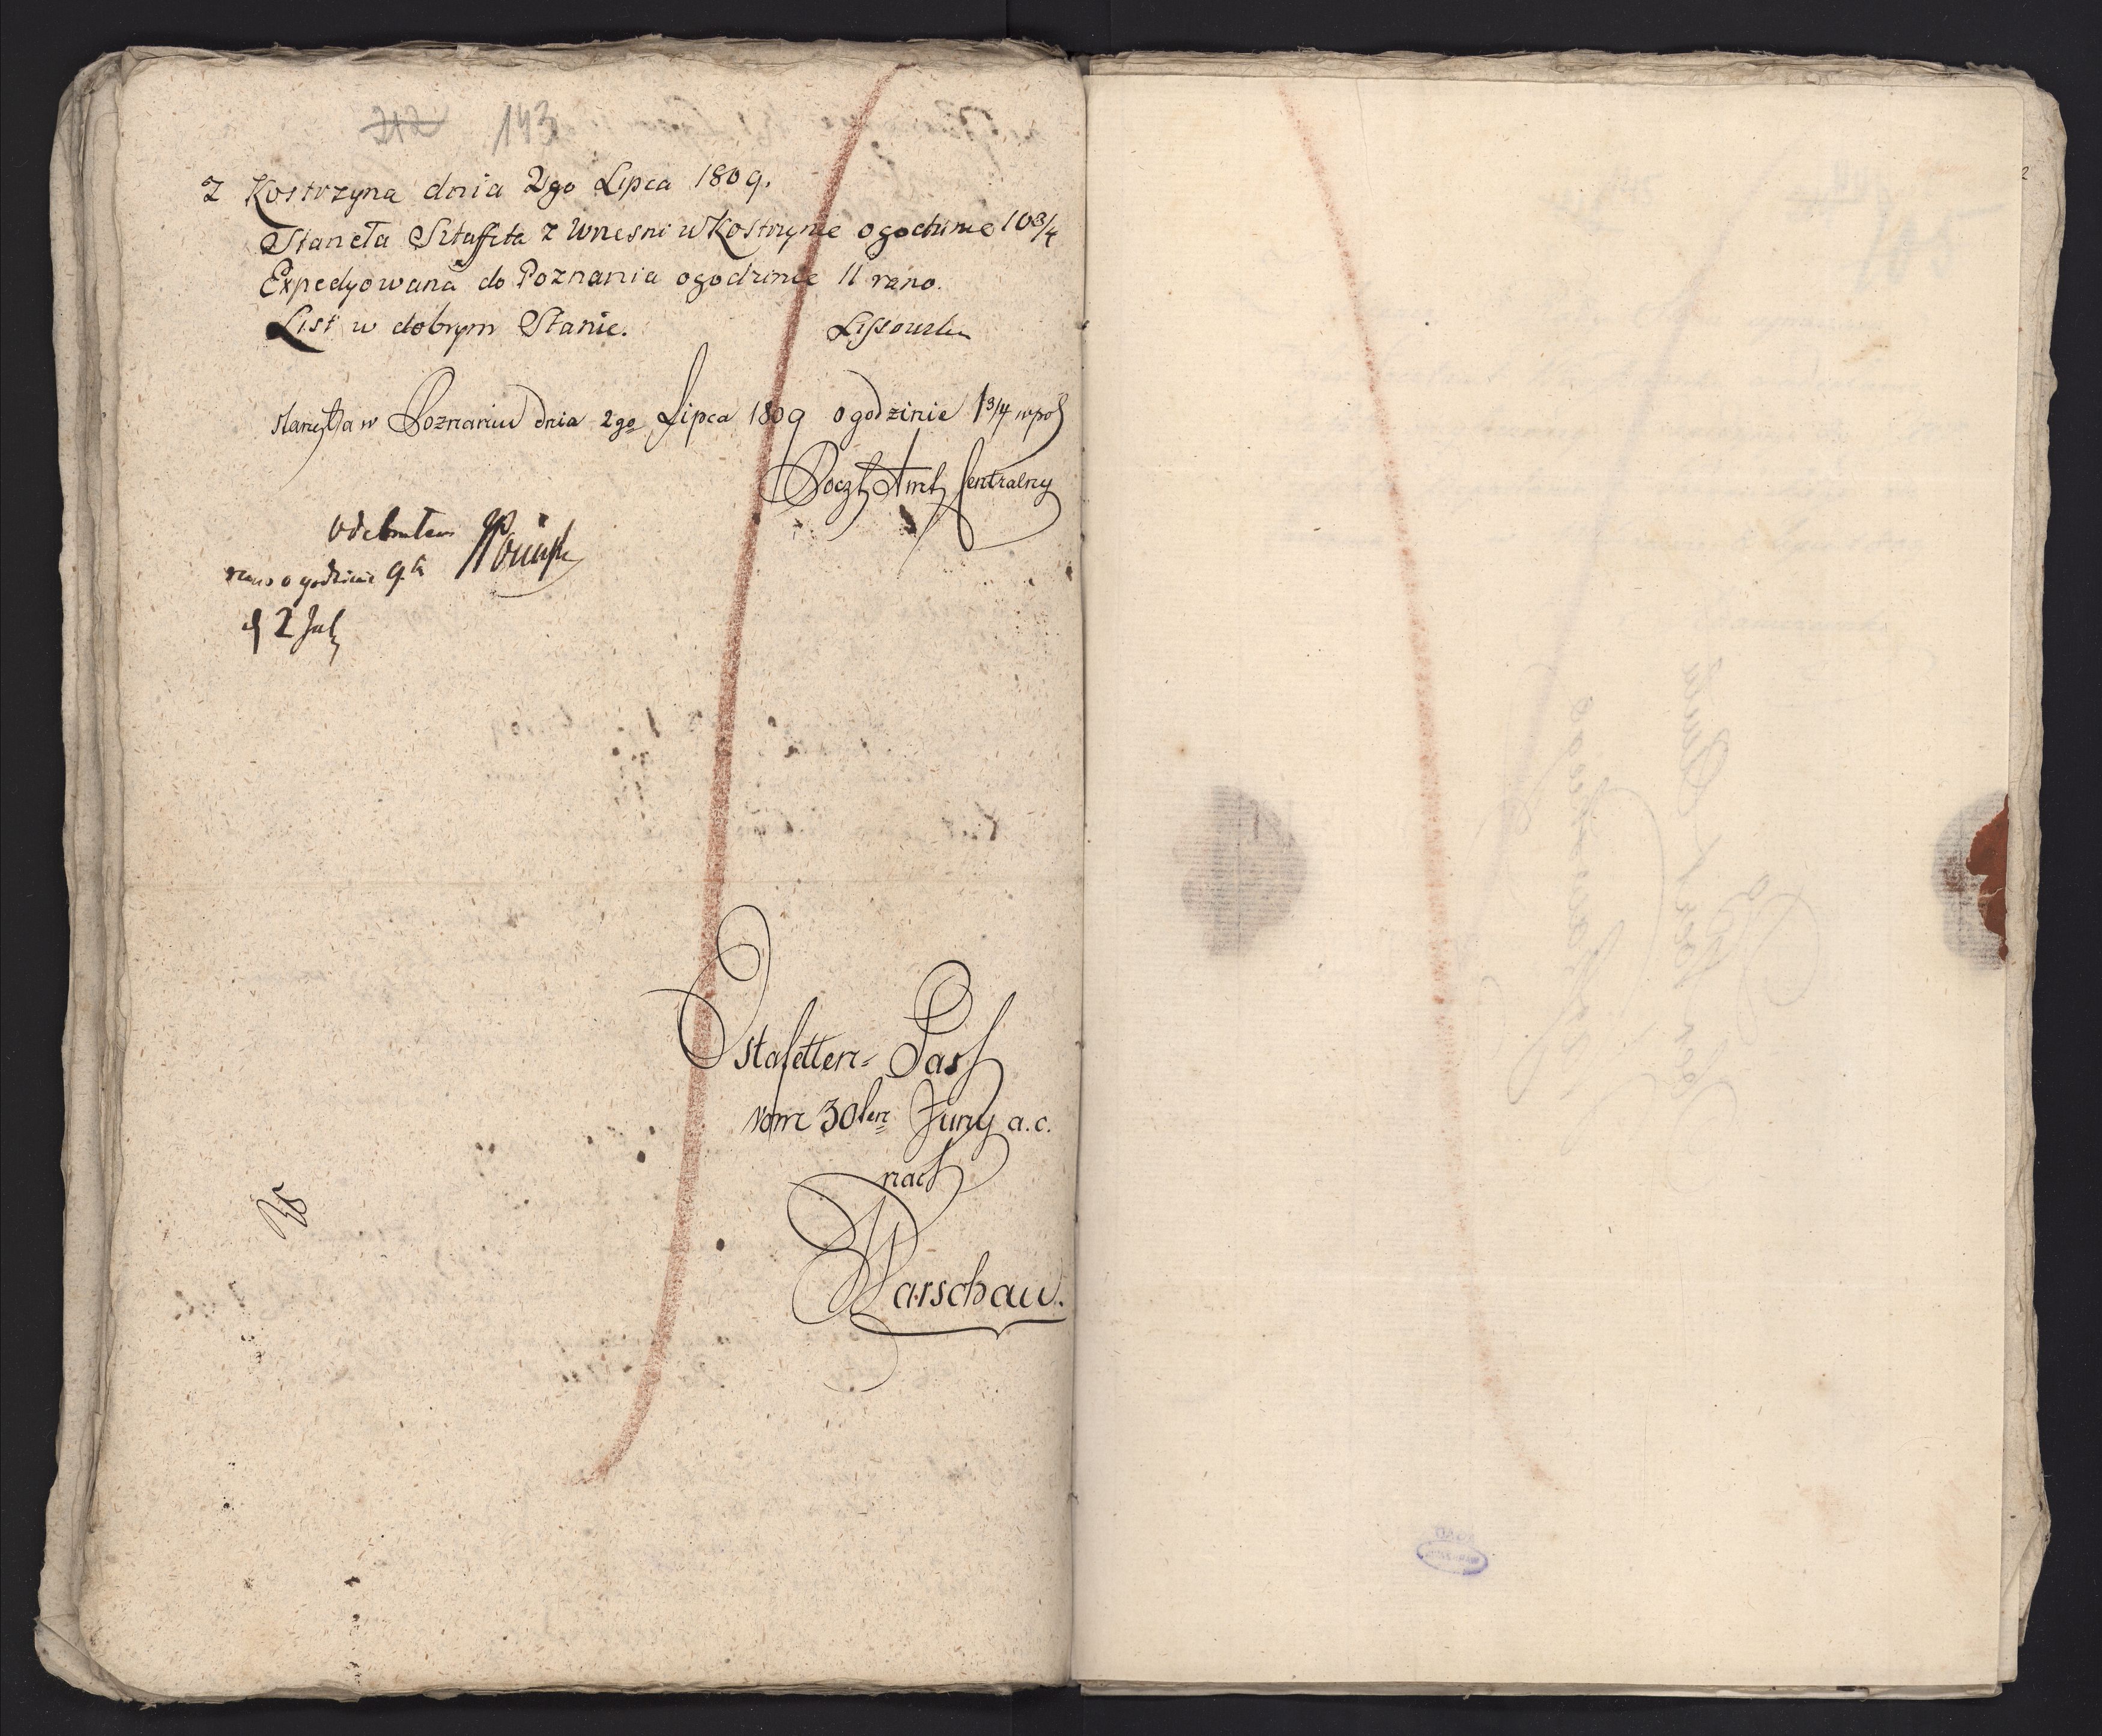 212 143
Z Kostrzyna dnia 2go Lipca 1809.
Staneła Sztaffeta z Wrzesni w Kostrzynie o godzinie 10 3/4
Expedyowana do Poznania o godzinie 11 rano.
List w dobrym Stanie. Lissowski
stanęła w Poznaniu dnia 2go Lipca 1809 o godzinie 1 3/4 wpoł
Poczt Amt Centralny
Odebrałem
rano o godzinie 9tey
d 2 July
Estafetten- Pass
vom 30ten Juny a. c.
nach
Warschau.